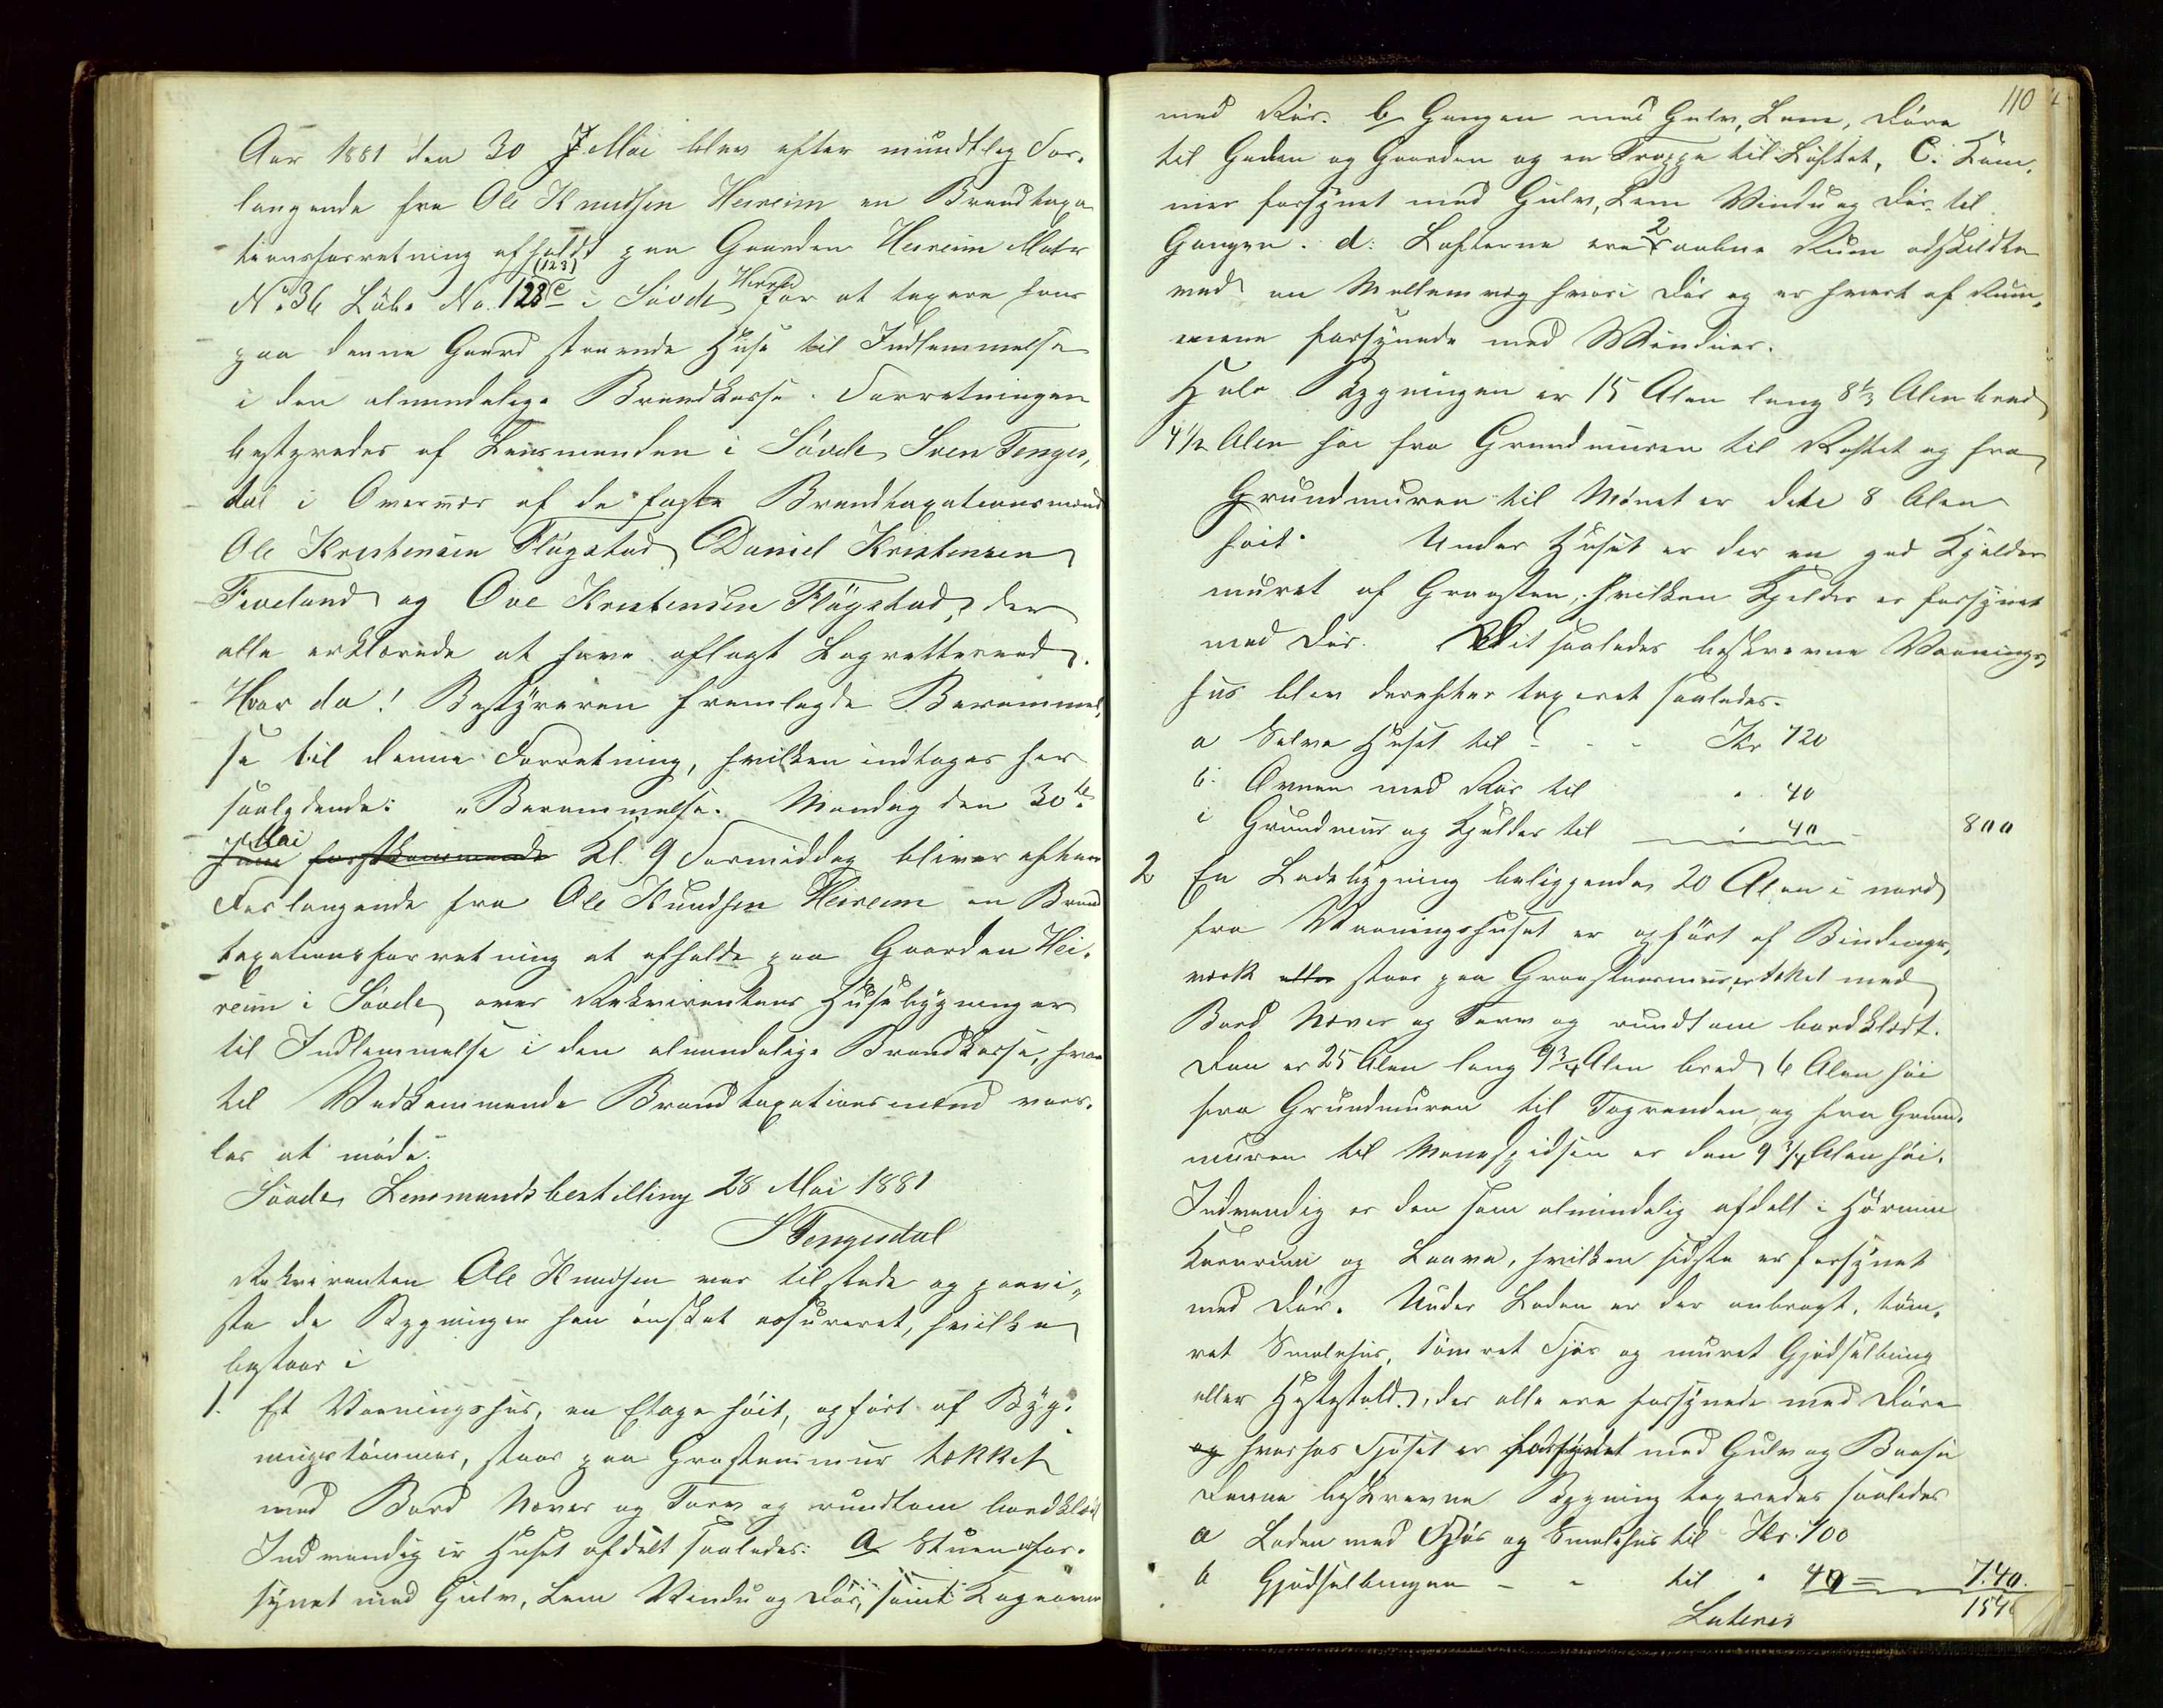 Aar 1881 den 30 Mai blev efter mundtlig For-
langende fra Ole Knudsen Heireim en Brandtaxa-
tionsforretning afholdt paa Gaarden Heireim Matr
No 36 Løbe No. 128 c (123) i Søvde Herred for at taxere hans
paa denne Gaard staaende Huse til Indlemmelse
i den almindelige Brandkasse. Forretningen
bestyredes af Lensmanden i Søvde Sven Tenges-
dal i Overvær af de faste Brandtaxationsmænd
Ole Kristensen Fløgstad, Daniel Kristensen
Fiveland og Ove Kristensen Fløgstad, der
alle erklærede at have aflagt Lagretteseed.
Hvor da! Bestyreren fremlagde Berammel-
se til denne Forretning, hvilken indtages her
saalydende: "Berammelse. Mandag den 30te
Mai Kl. 9 Formiddag bliver efter
Forlangende fra Ole Knudsen Heireim en Brand
taxationsforretning at afholde paa Gaarden Hei-
reim i Søvde over Rekvirentens Husebygninger
til Indlemmelse i den almindelige Brandkasse, hvor
til Vedkommende Brandtaxationsmænd vars-
les at møde.
Søvde Lensmandsbestilling 28 Mai 1881
S Tengesdal
Rekvirenten Ole Knudsen var tilstede og paavi-
ste de Bygninger han ønsket assureret, hvilke
bestaar i
1. Et Vaaningshus, en Etage høit, opført af Byg-
ningstømmer, staar paa Graastensmur tækket
med Bord Næver og Torv og rundtom bordklædt
Indvendig er Huset afdelt saaledes: a Stuen for-
synet med Gulv, Lem Vindu og Dør, samt Kogeovn
110
med Rør. b Gangen med Gulv, Lem, Døre
til Gaden og Gaarden og en Trappe til Loftet, C. Kam-
mer forsynet med Gulv, Lem Vindu og Dør til
Gangen. d: Lofterne ere 2 aabne Rum adskildte
ved en Mellemvæg hvori Dør og er hvert af Rum-
mene forsynede med Vinduer.
Hele Bygningen er 15 Alen lang 8 1/3 Alen bred
4 1/2 Alen høi fra Grundmuren til Raftet og fra
Grundmuren til Mønet er dete 8 Alen
høit. Under Huset er der en god Kjelder
muret af Graasten, hvilken Kjelder er forsynet
med Dør. Dit saaledes beskrevne Vaanings
hus blev derefter taxeret saaledes.
a Selve Huset til - - Kr 720
b. Ovnen med Rør til " 40
c Grundmur og Kjelder til " 40 800
2 En Ladebygning beliggende 20 Alen i nord
fra Vaaningshuset er opført af Bindings-
værk staar paa Graastensmur, er tækket med
Bord Næver og Torv og rundtom bordklædt.
Den er 25 Alen lang 9 3/4 Alen bred 6 Alen høi
fra Grundmuren til Tagrenden og fra Grund-
muren til Mønespidsen er den 9 3/4 Alen høi.
Indvendig er den som almindelig afdelt i Hørum
Kornrum og Laave, hvilken sidste er forsynet
med Dør. Under Laden er der anbragt, tøm-
ret Smalehus, tømret Fjøs og muret Gjødselbinge
eller Hestestald, der alle ere forsynede med Døre
og hvorhos Fjøset er forsynet med Gulv og Baase
Denne beskrevne Bygning taxeredes saaledes
a Laden med Fjøs og Smalehus til Kr. 700
b Gjødselbingen - - til " 40 = 7.40.
Lateris 154